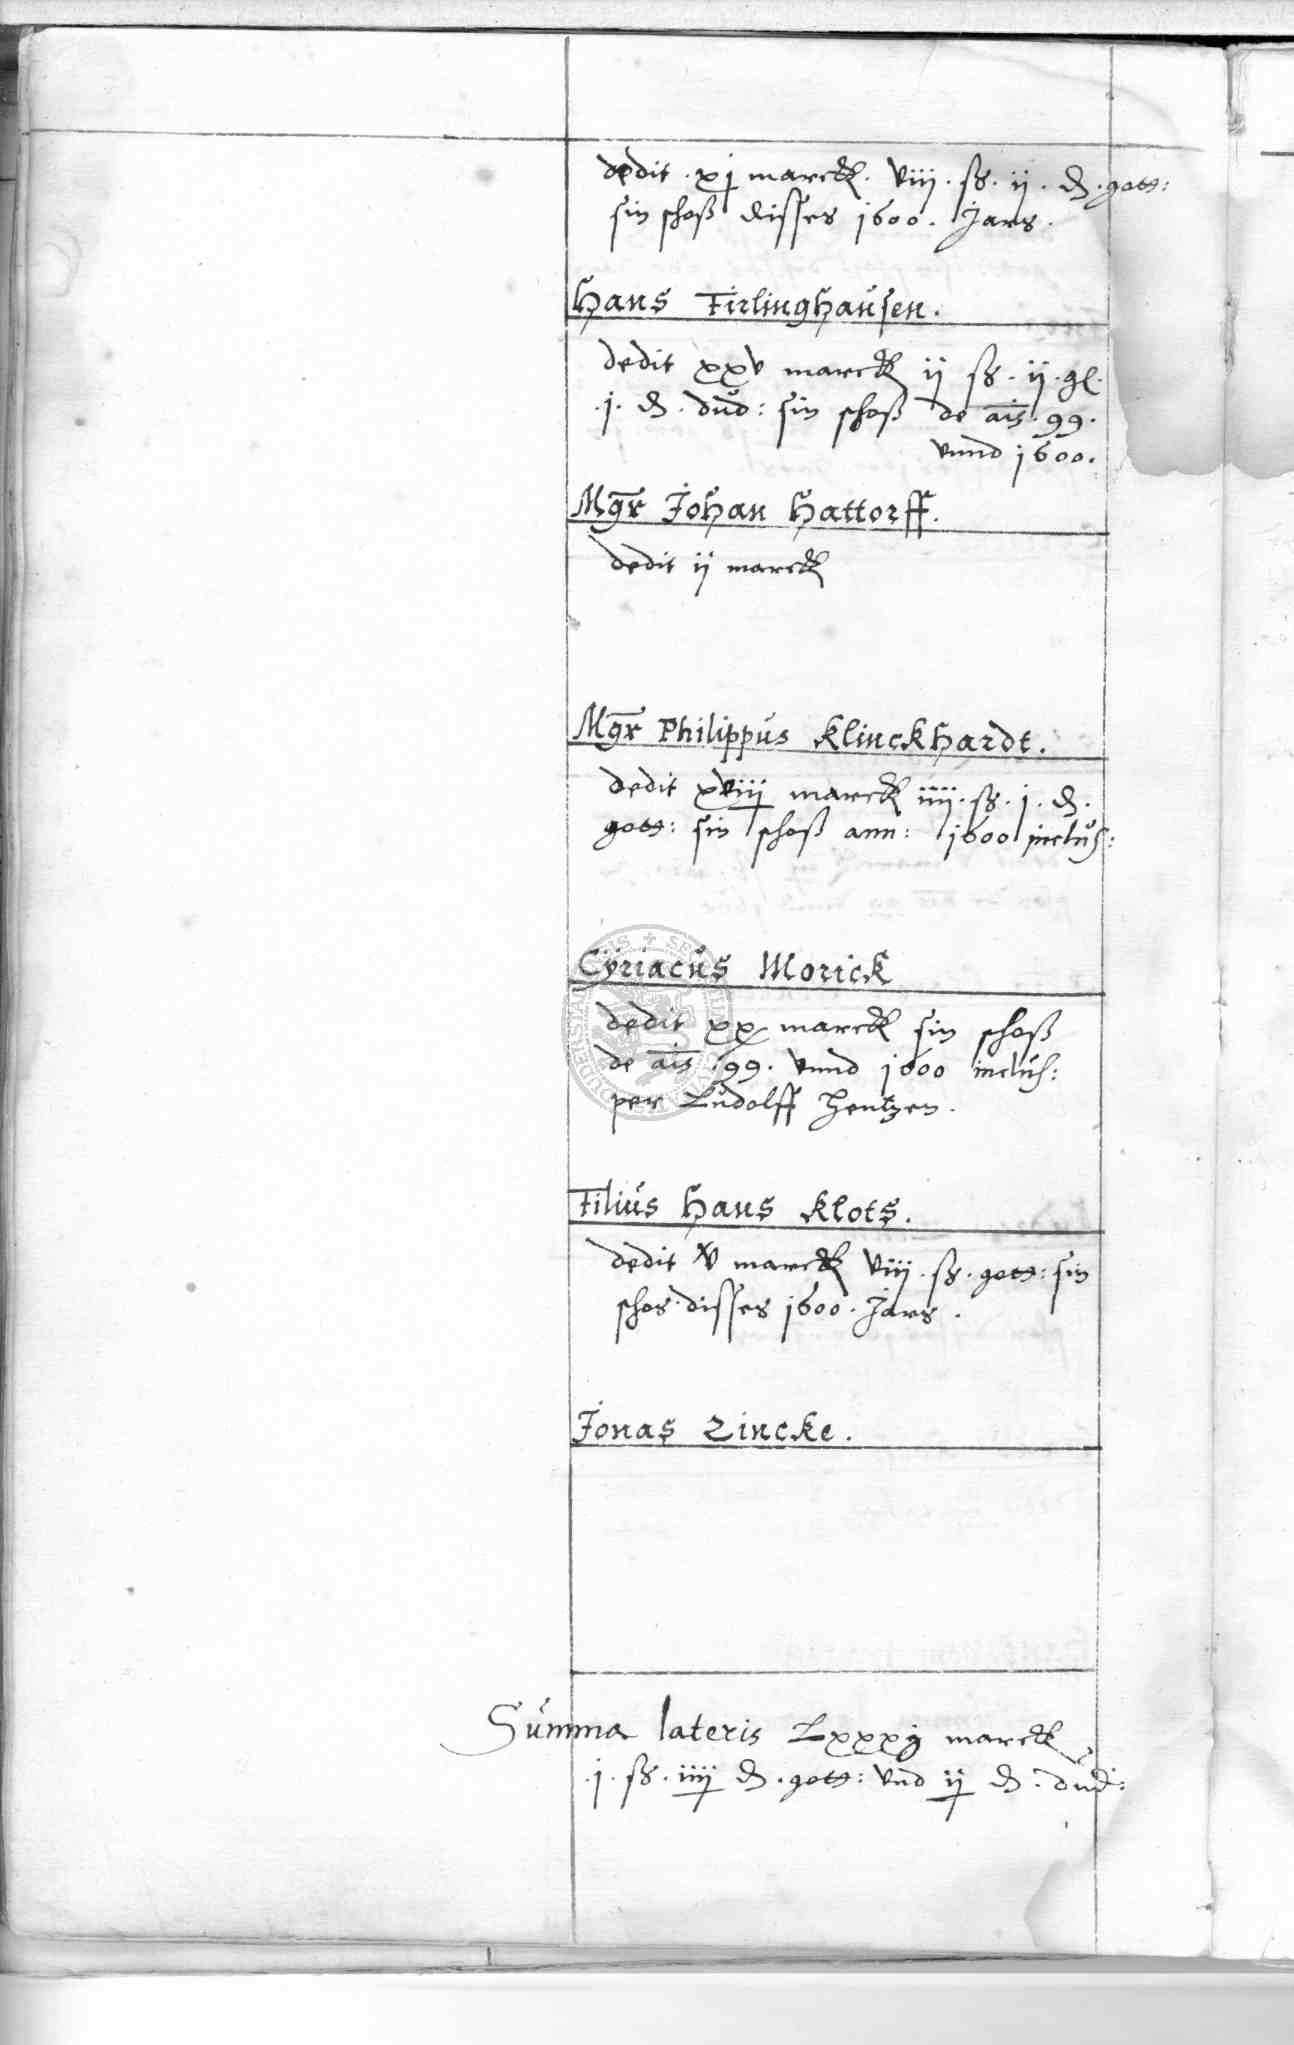 dedit . xj marck . viij . ß . ij . ₰ . gott:
sin schoß disses 1600 . Jars .
Hans Firlinghausen .
dedit xxv marck ij ß . ij . gl .
. j . ₰ . dud : sin schoß de ais . 99 .
vnnd 1600 .
Mgr Johan Hattorff .
dedit ij marck
Mgr Philippus Klinckhardt .
dedit xviij marck iiij . ß . j . ₰ .
gott : sin schoß ann : 1600 inclus :
Cyriacus Morick
dedit xx marck sin schoß
de ais . 99 . vnnd 1600 inclus :
per Ludolff Hentzen .
Filius Hans Klots .
dedit v marck viij . ß . gott : sin
schos . disses 1600 . Jars .
Jonas Zincke .
Summa lateris Lxxxij marck
. j . ß . iiij ₰ . gott : vnd ij ₰ . dud :